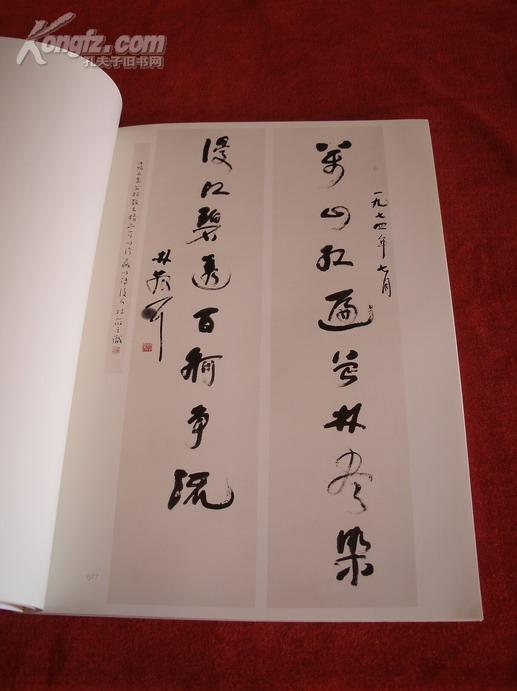 Kongfz.com
孔夫子旧书网
一九七四年七月
万山红遍 层林尽染
漫江碧透 百舸争流
林散耳
677